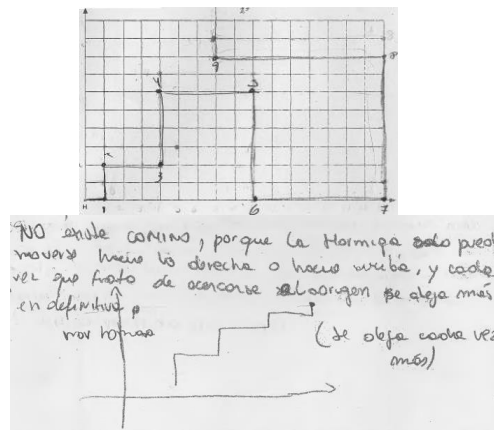 H
1
3
4
5
6
7
8
9
NO existe camino, porque la Hormiga solo pued
moverse hacia la derecha o hacia arriba, y cada
vez que trato de acercarse al origen se aleja más
en definitiva
(se aleja cada vez
más)